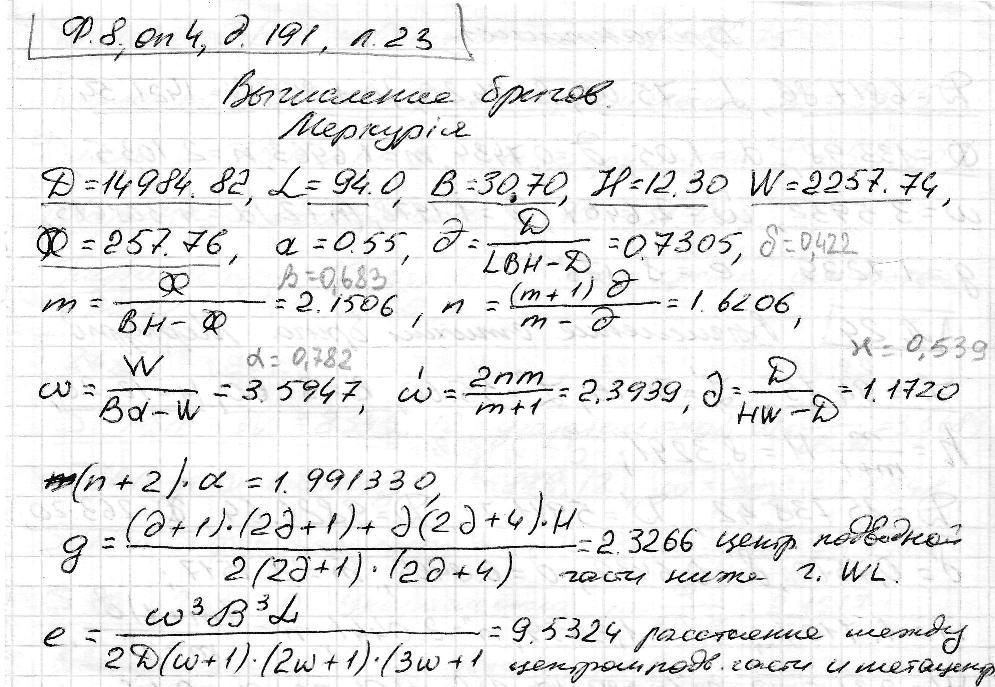 Ф.8, оп 4, д. 191, л. 23
Вычисление бригов.
Меркурія
D = 14984.82, L = 94.0, B = 30,70, H = 12.30 W = 2257.74,
Ф = 257.76, a = 0.55, ∂ = D / (LBH − D) = 0.7305, δ = 0,422
β = 0,683
m = Ф / (BH − Ф) = 2.1506, n = (m+1) ∂ / (m − ∂) = 1.6206,
α = 0,782 ϰ = 0,539
ω = W / (Bd − W) = 3.5947, ώ = 2nm / (m+1) = 2.3939, ∂ = D / (HW − D) = 1.1720
(n + 2) · α = 1.991330,
g = ((∂+1)·(2∂+1) + ∂(2∂+4)·H) / (2(2∂+1)·(2∂+4)) = 2.3266 центр подводной
части ниже г. WL.
e = ω³B³L / (2D(ω+1)·(2ω+1)·(3ω+1 = 9.5324 расстояние между
центром подв. части и метацентр